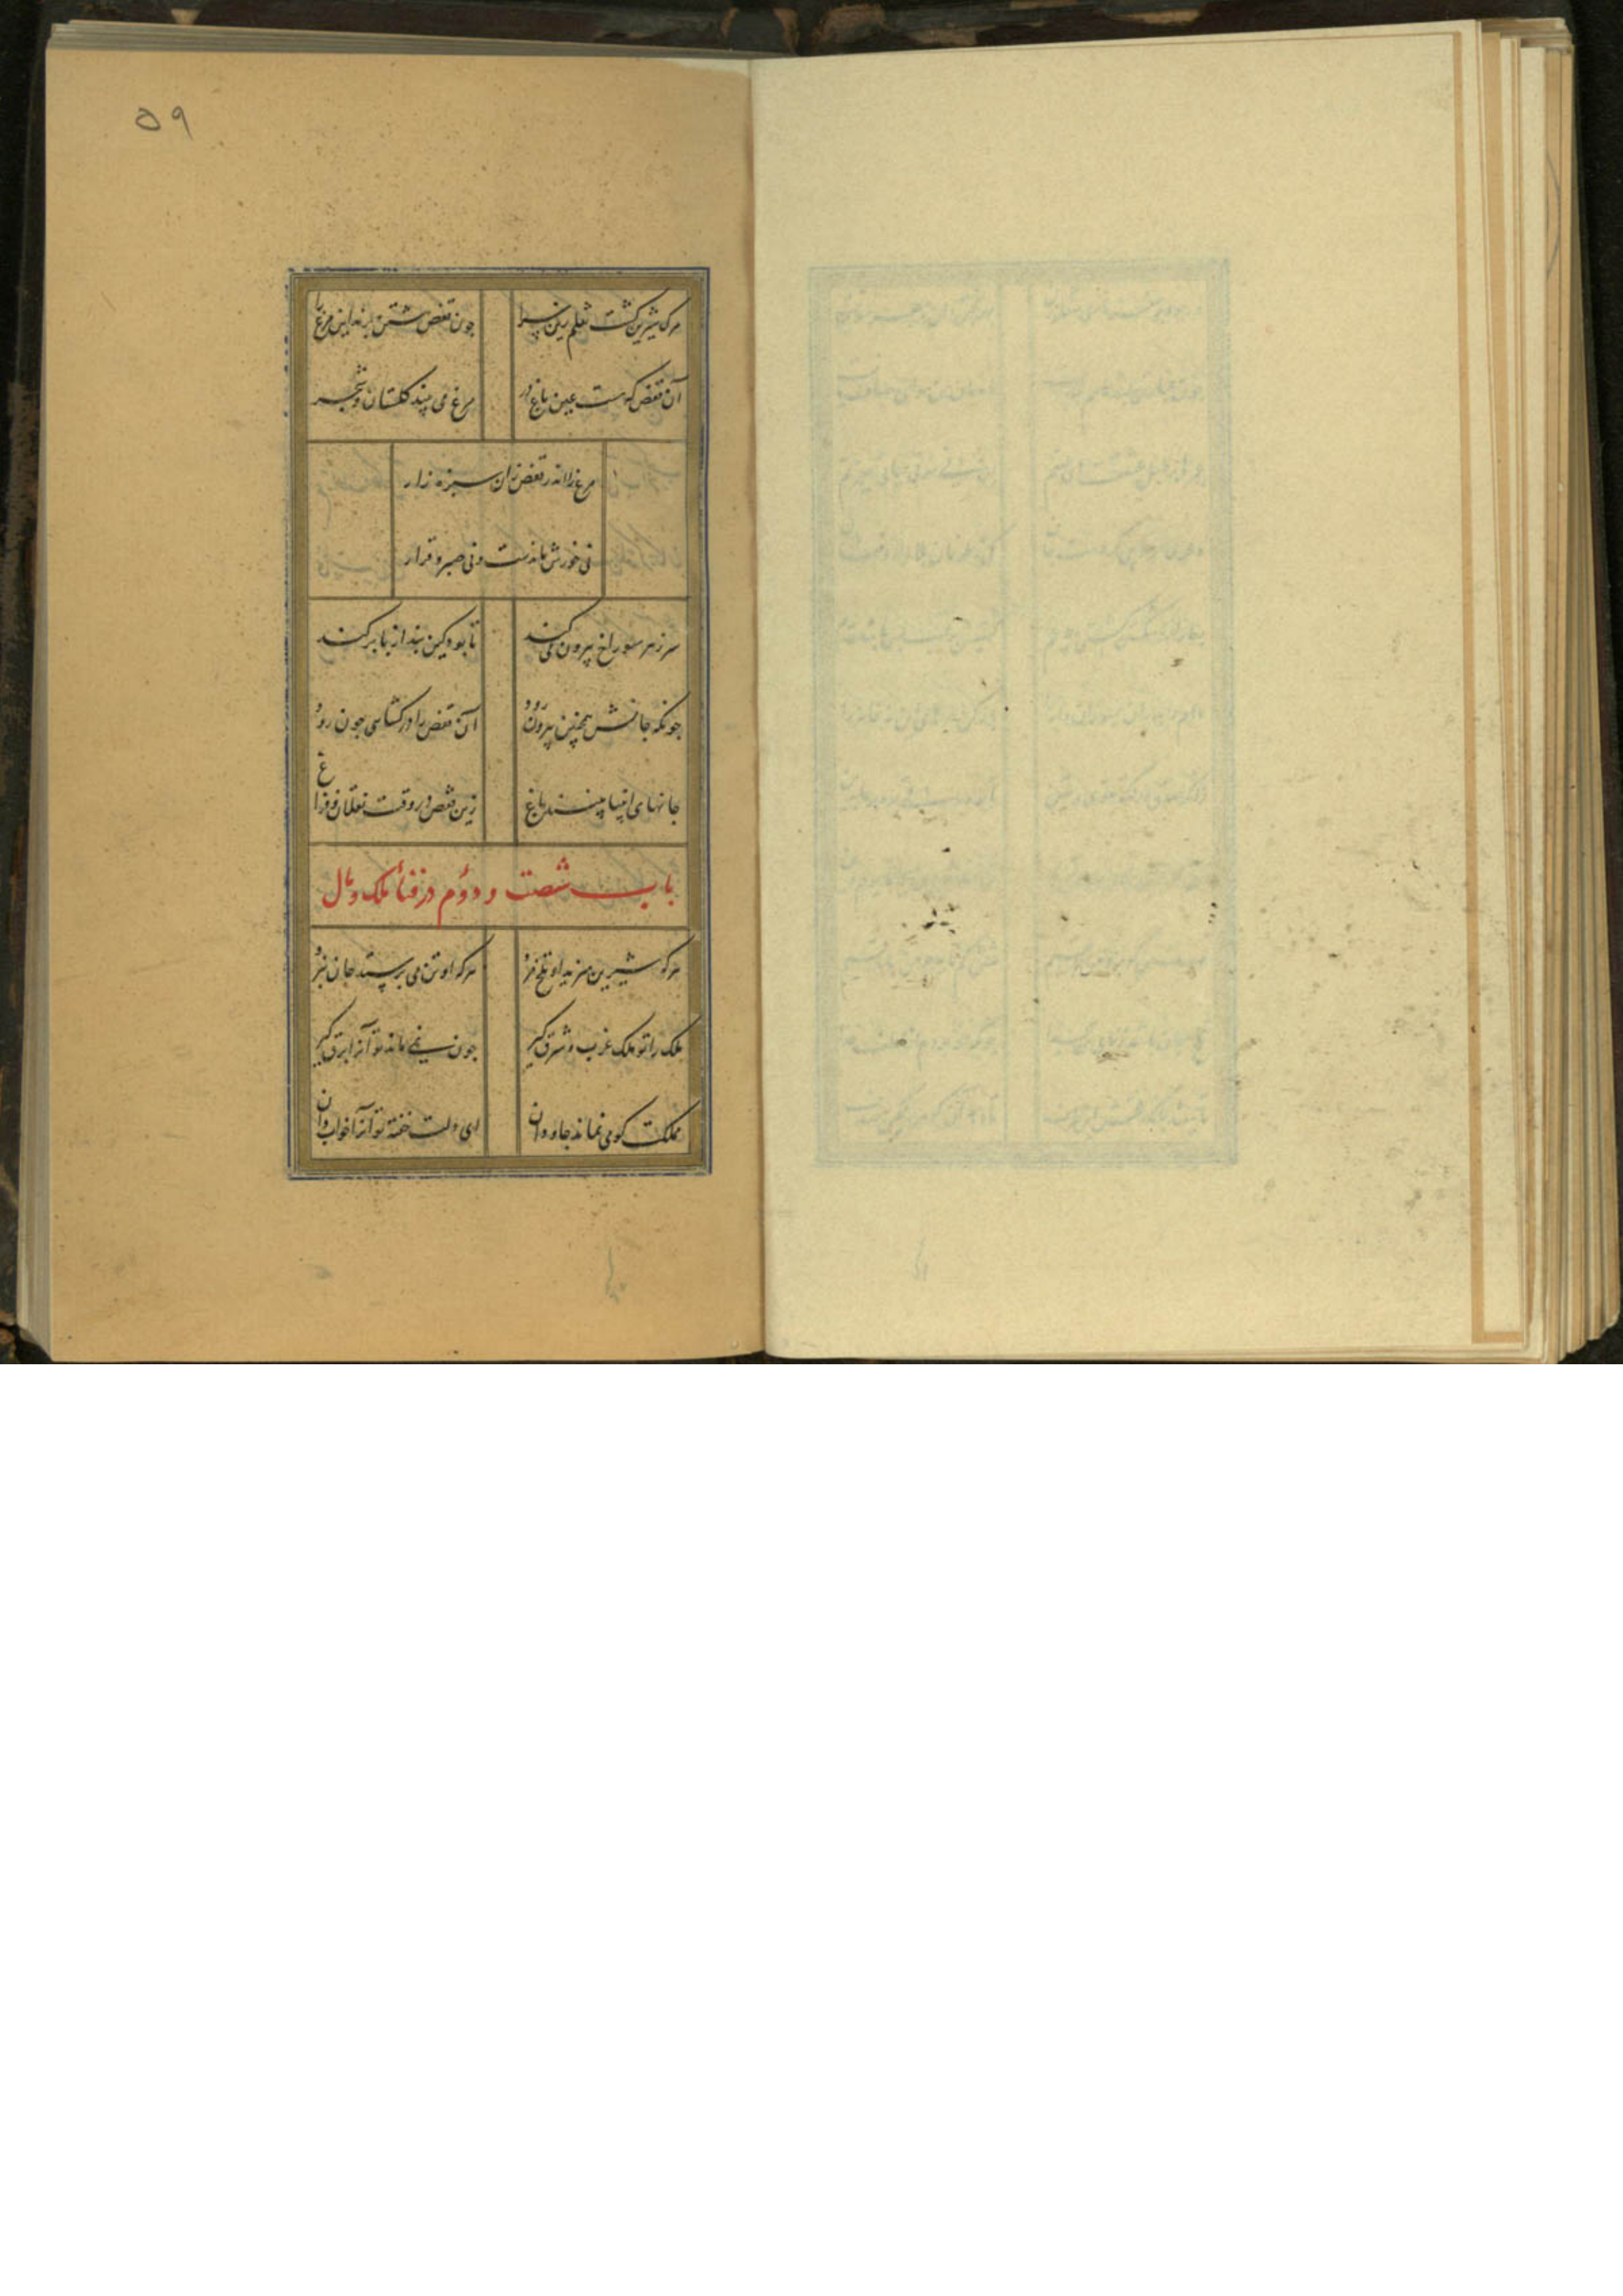 ۵۹
مرک شیرین کشت نقلم زین سرا
جون قفص هشتن پرند این مرغ را
آن قفص که هست عین باغ در
مرغ می بیند کلستان و شجر
مرغ را اندر قفص زان سبزه زار
نی خورش ماندست و نی صبر و قرار
سر ز هر سوراخ بیرون می کند
تا بود کین بند از پا بر کند
جونکه جانش همچنین بیرون رود
آن قفص را در کشایی جون رود
جانهای انبیا بینند باغ
زین قفص در وقت نقلان و فراغ
باب شصت و دوم در فناء ملک و مال
هرکه شیرین میزید او تلخ مرد
هرکه او تن می پرستد جان نبرد
ملک را تو ملک غرب و شرق کیر
جون نمی ماند تو آنرا برق کیر
مملکت کو می نماند جاودان
ای دلت خفته تو آنرا خواب دان